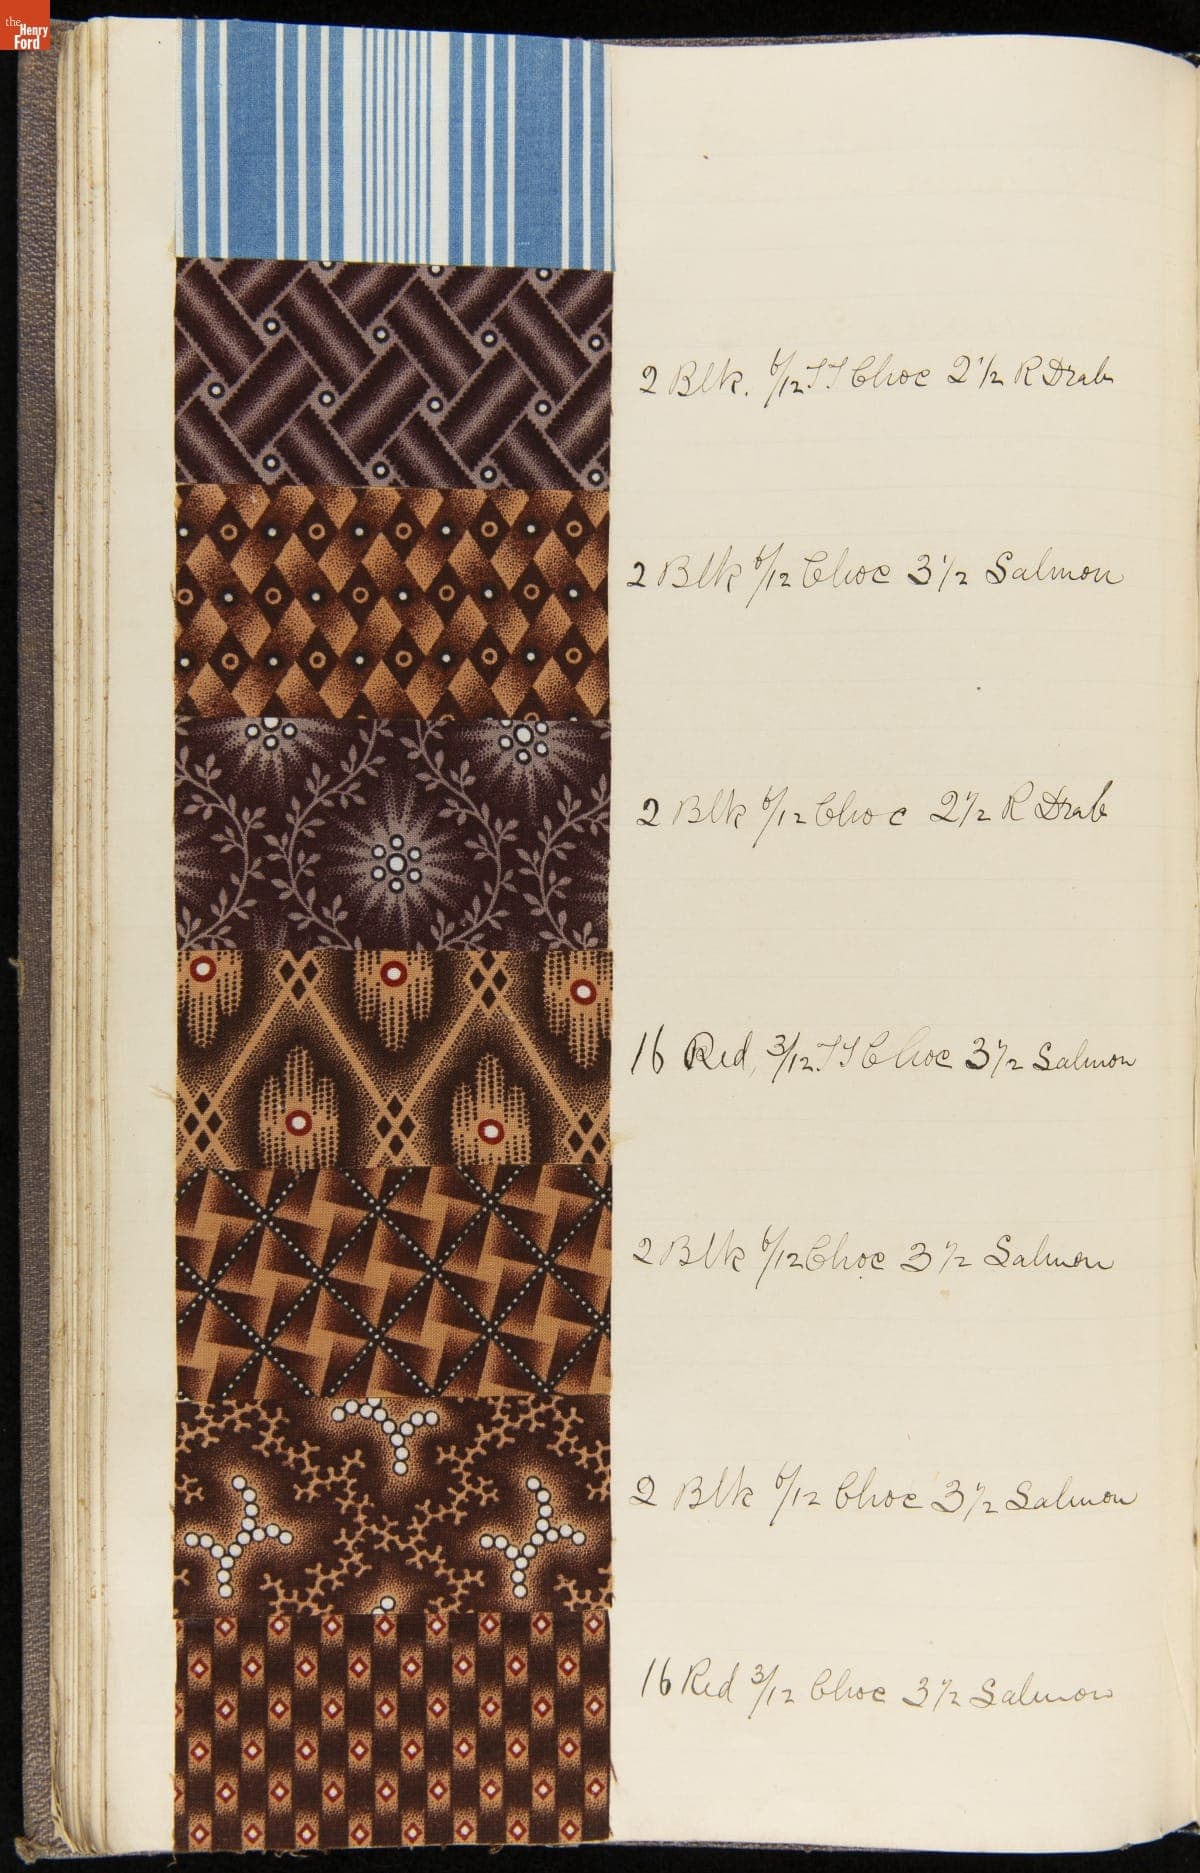 the
Henry
Ford
2 Blk. 6/12 TT Choc 2 1/2 R Drab
2 Blk 6/12 Choc 3 1/2 Salmon
2 Blk 6/12 Choc 2 1/2 R Drab
16 Red, 3/12 TT Choc 3 1/2 Salmon
2 Blk 6/12 Choc 3 1/2 Salmon
2 Blk 6/12 Choc 3 1/2 Salmon
16 Red 3/12 Choc 3 1/2 Salmon